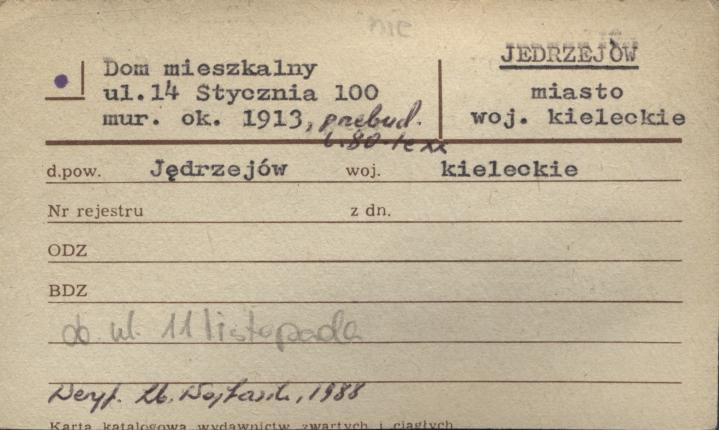 nie
JĘDRZEJÓW
Dom mieszkalny
ul.14 Stycznia 100
miasto
mur. ok. 1913, przebud.
woj. kieleckie
l.80-te XX
d.pow. Jędrzejów woj. kieleckie
Nr rejestru z dn.
ODZ
BDZ
ob. ul. 11 listopada
Weryf. 1988
Karta katalogowa wydawnictw zwartych i ciągłych